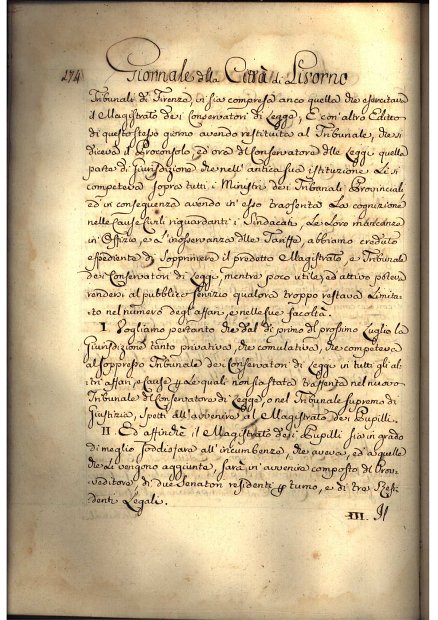 274 Giornale della Città di Livorno
Tribunali di Firenze, in sia compresa anco quella che esercitava
il Magistrato dei Conservatori di Legge, E con altro Editto
di questo stesso giorno avendo restituita al Tribunale, che si
diceva il Proconsolo, ed ora del Conservatore delle Leggi quella
parte di Giurisdizione che nell' antica sua istituzione Li si
competeva sopra tutti i Ministri dei Tribunali Provinciali
ed in conseguenza avendo in esso trasfenta La cognizione
nelle Cause Civili riguardanti i Sindacati, Le Loro mancanze
in Offizio, e L'inosservanza delle Tariffe, abbiamo creduto
espediente di Sopprimere il predetto Magistrato, e Tribunale
dei Conservatori di Leggi, mentre poco utile, ed attivo poteva
rendersi al pubblico servizio qualora troppo restava Limita-
to nel numero degl'affari, e nelle sue facoltà.
I. Vogliamo pertanto che dal dì primo del prossimo Luglio la
Giurisdizione tanto privativa, che comulativa, che competeva
al soppresso Tribunale dei Conservatori di Leggi in tutti gli al-
tri affari, e Cause p Le quali non sia stata trasfenta nel nuovo
Tribunale del Conservatore di Legge, o nel Tribunale supremo di
Giustizia, Spetti all'avvenire al Magistrato dei Pupilli.
II. Ed affinchè il Magistrato dei Pupilli sia in grado
di meglio soddisfare all' incumbenze, che aveva, ed a quelle
che Li vengono aggiunte, sarà in avvenire composto di Prov-
veditore, di due Senatori residenti p turno, e di tre Resi-
denti Legali.
III. Il